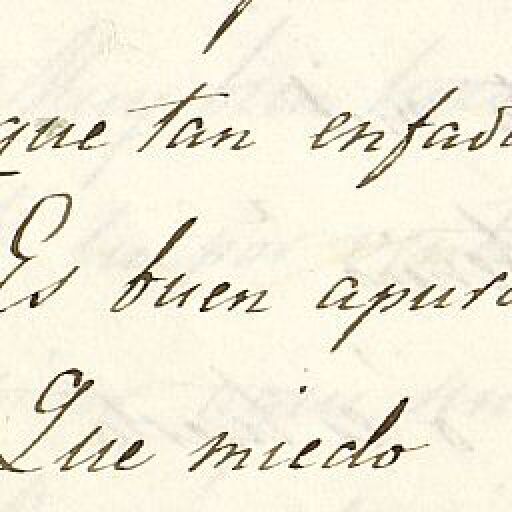 que tan enfad
Es buen apur
Que miedo